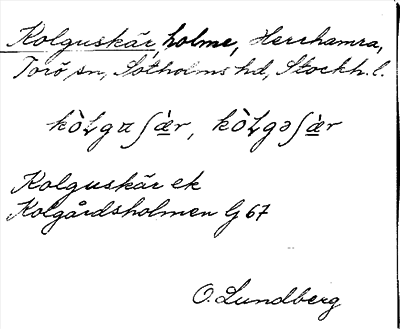 Kolguskär, holme, Herrhamra,
Torö sn, Sotholms hd, Stockh. l.
kòɫgɑʃæ̀r, kòɫgəʃæ̀r
Kolguskär ek
Kolgårdsholmen G 67
O. Lundberg